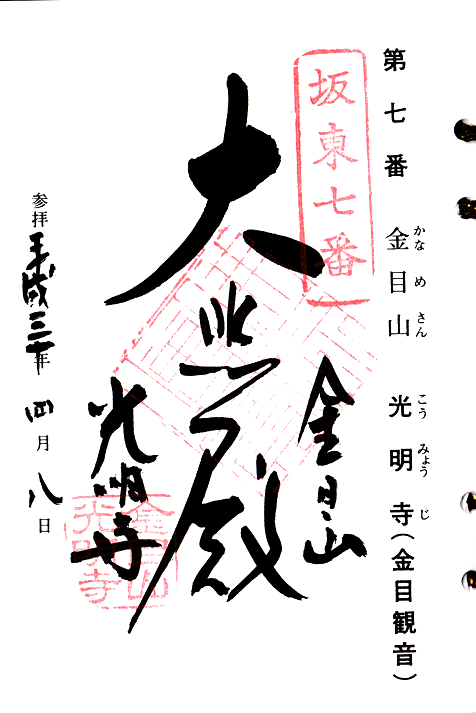 第七番 金目山 光明寺(金目観音)
かなめさん こうみょうじ
坂東七番
金目山
大悲殿
光明寺
金目山
光明寺
参拝平成三十年四月八日